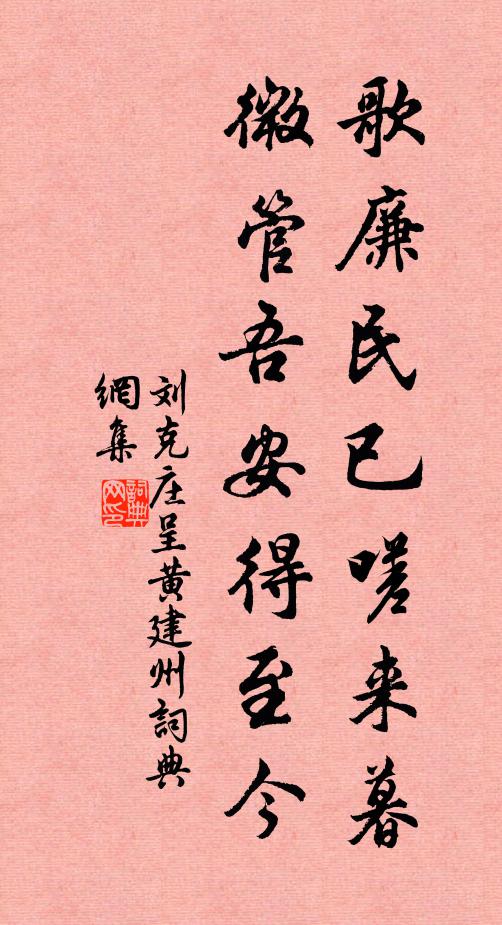 歌廉民已嗟来暮
微管吾安得至今
刘克庄呈黄建州詞典
網集
詞典
网印